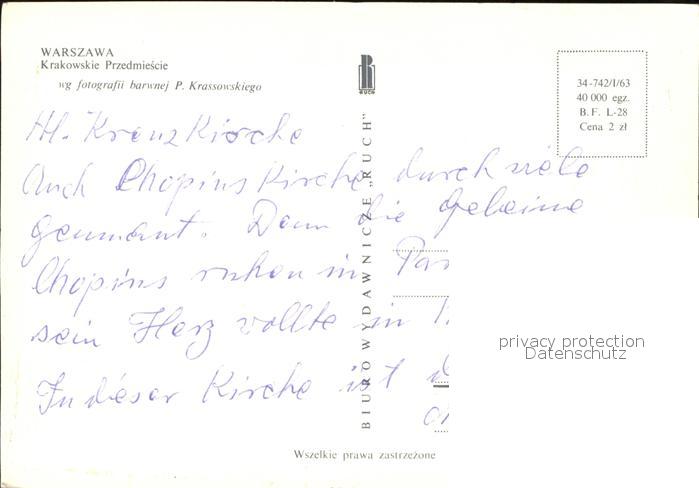 WARSZAWA
Krakowskie Przedmieście
wg fotografii barwnej P. Krassowskiego
RUCH
34-742/I/63
40 000 egz.
B. F. L-28
Cena 2 zł
Hl. Kreuz Kirche
Auch Chopins Kirche durch viele
genannt. Denn die Gebeine
Chopins ruhen in Par
sein Herz vollte in
In dieser Kirche ist d
BIURO WYDAWNICZE „RUCH"
privacy protection
Datenschutz
Wszelkie prawa zastrzeżone